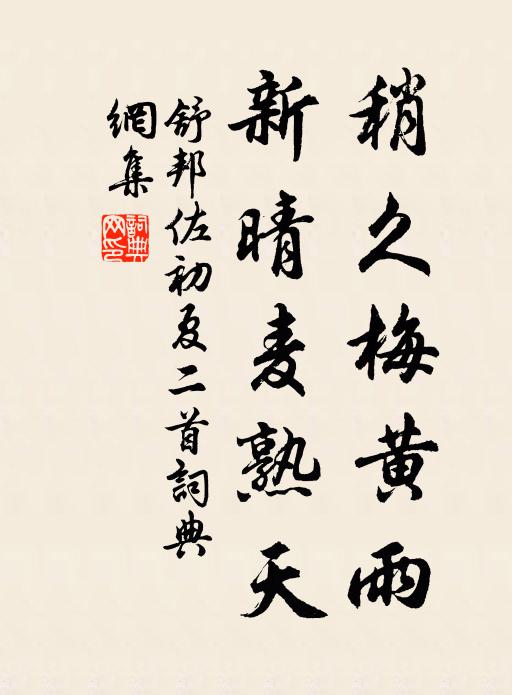 稍久梅黄雨
新晴麦熟天
舒邦佐初夏二首詞典
網集
詞典網印